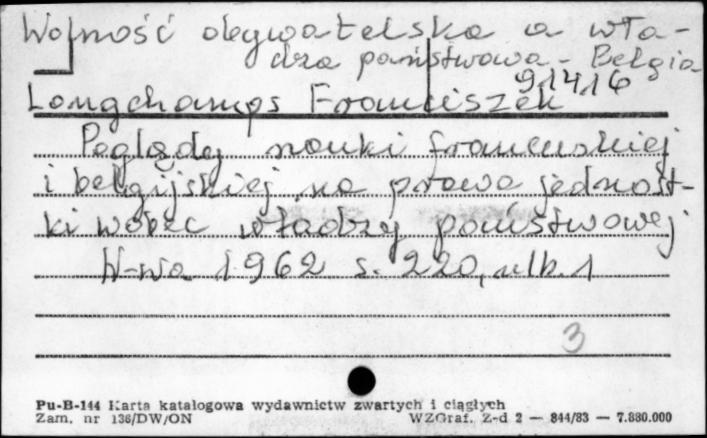 Wolność obywatelska a wła-
dza państwowa - Belgia
91416
Longchamps Franciszek
Poglądy nauki francuskiej
i belgijskiej na prawa jednost-
ki wobec władzy państwowej.
W-wa 1962 s. 220, nlb. 1
3
Pu-B-144 Karta katalogowa wydawnictw zwartych i ciągłych
Zam. nr 136/DW/ON WZGraf. Z-d 2 — 844/83 — 7.880.000